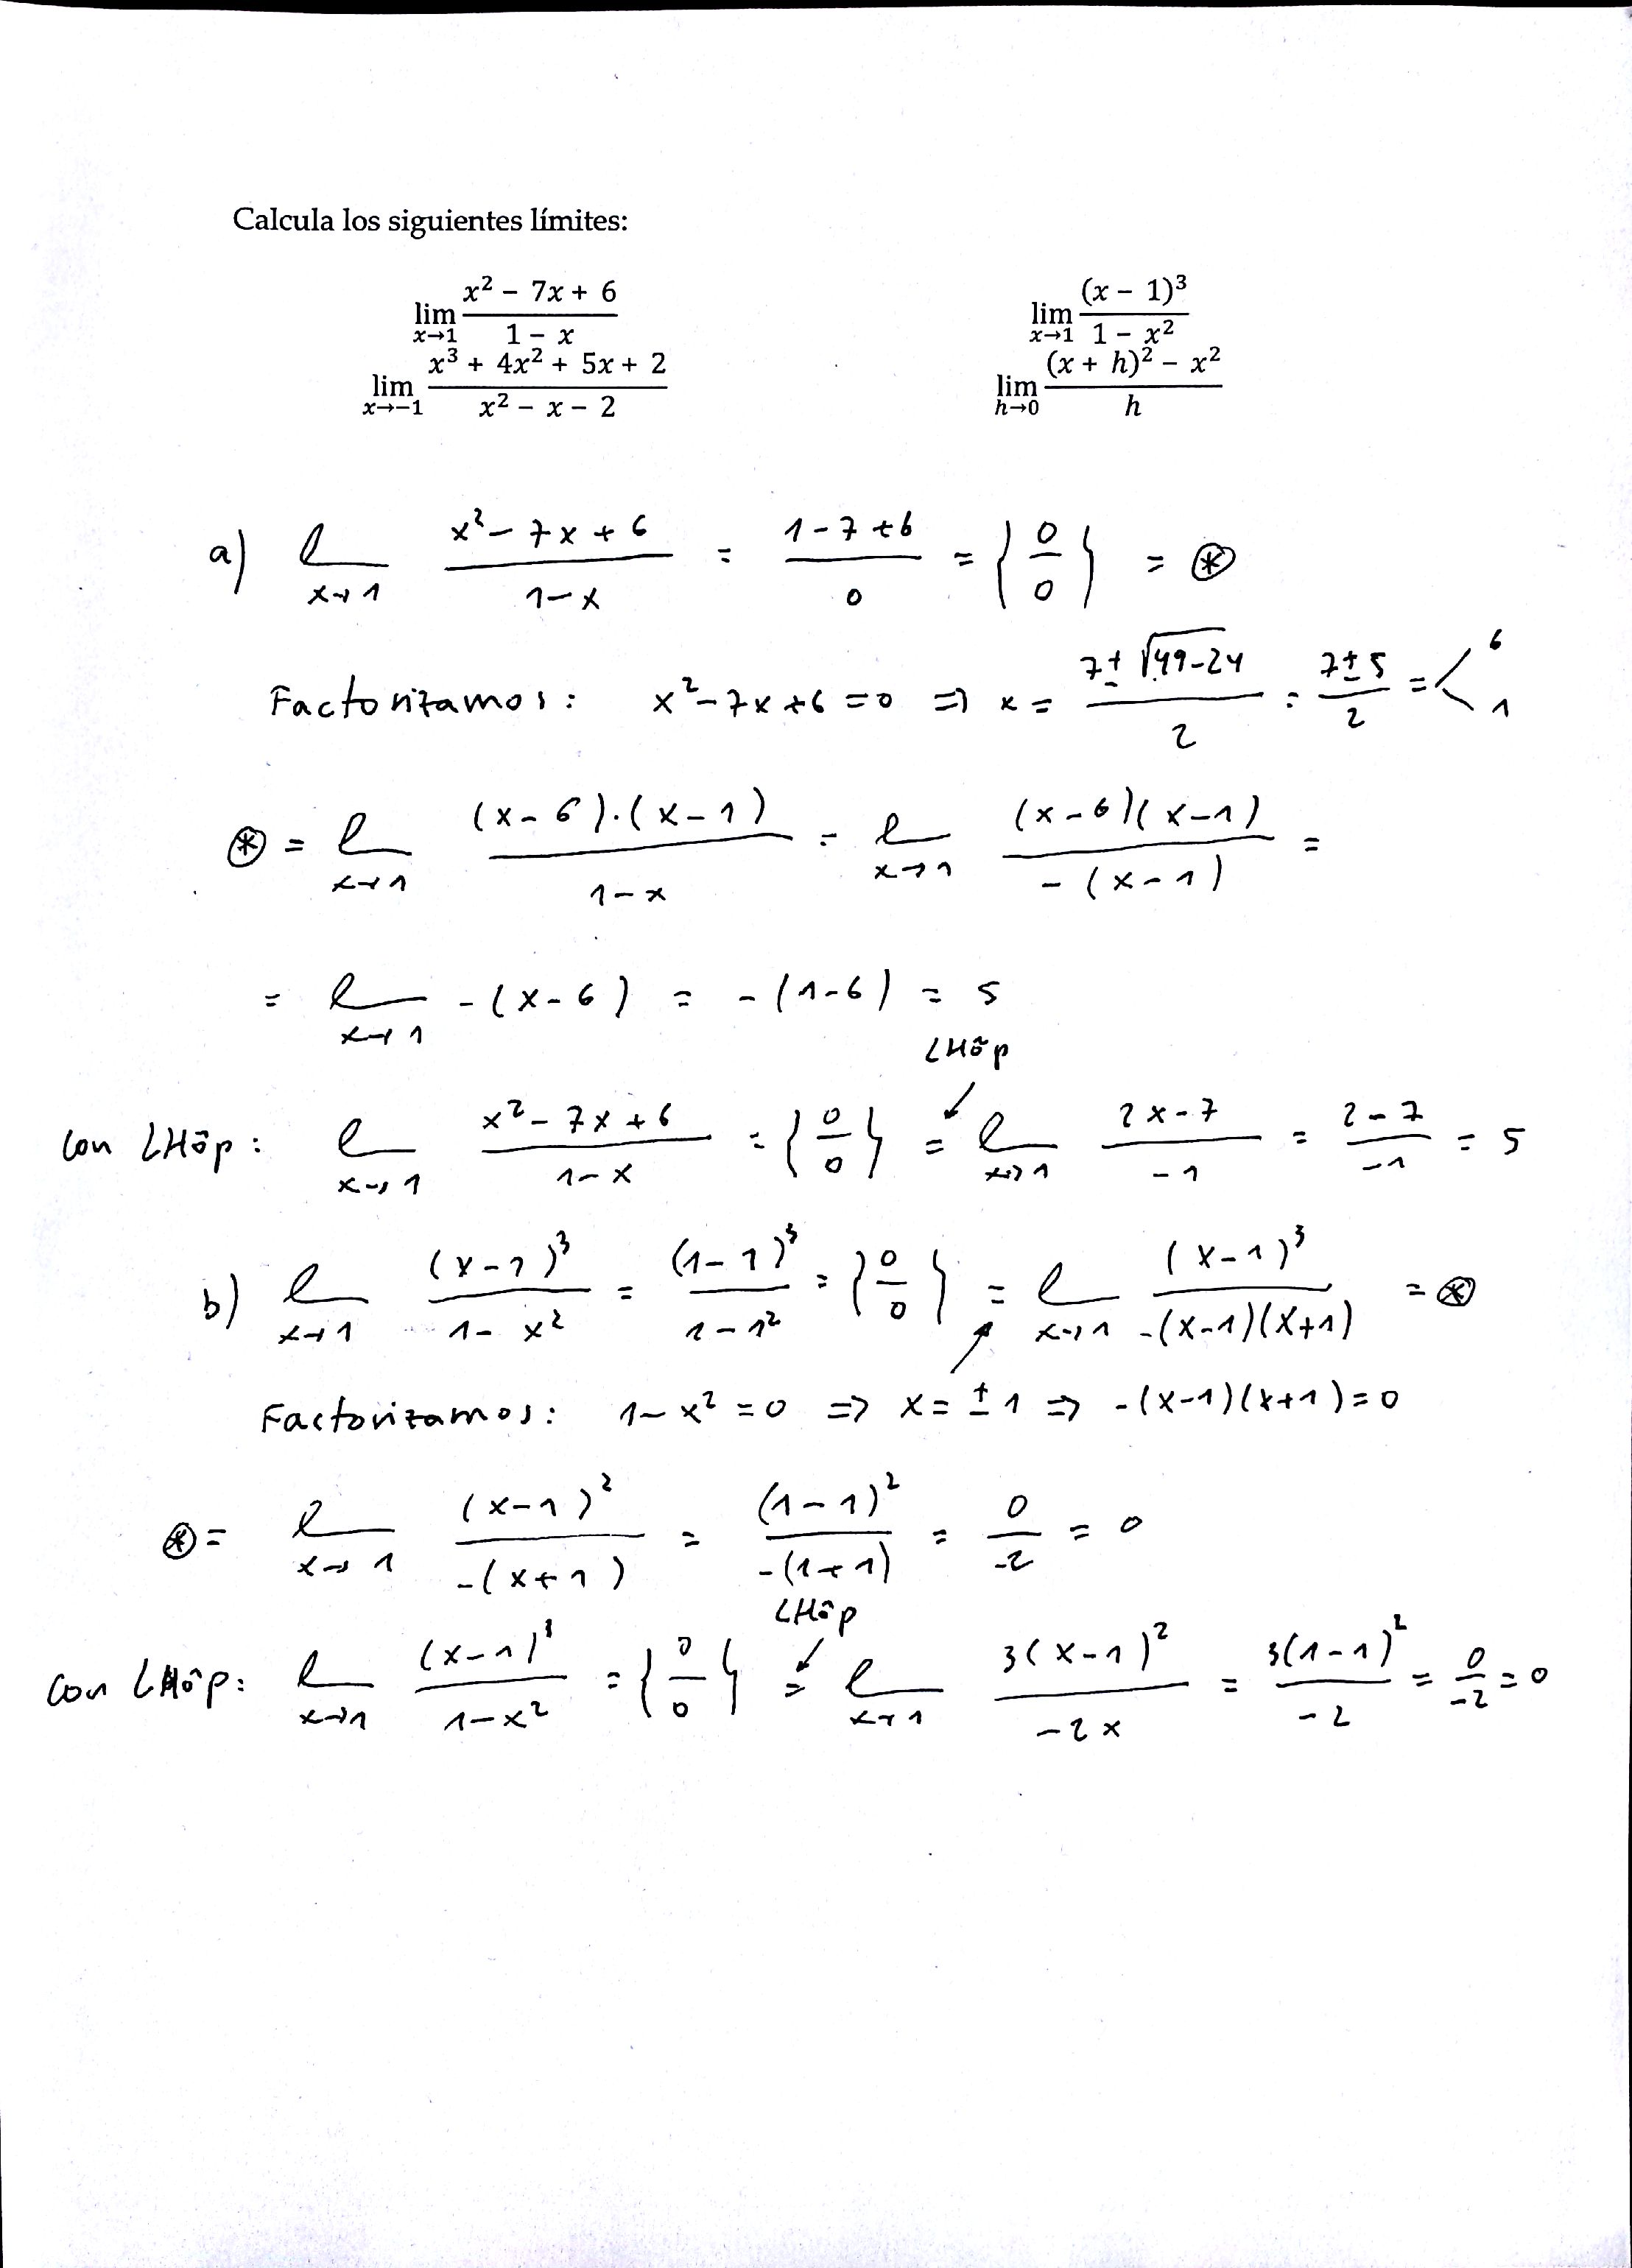 Calcula los siguientes límites:
lim_{x→1} (x² − 7x + 6)/(1 − x)    lim_{x→1} (x − 1)³/(1 − x²)
lim_{x→−1} (x³ + 4x² + 5x + 2)/(x² − x − 2)    lim_{h→0} ((x + h)² − x²)/h
a) l_{x→1} (x² − 7x + 6)/(1 − x) = (1 − 7 + 6)/0 = {0/0} = ⊛
Factorizamos: x² − 7x + 6 = 0 ⇒ x = (7 ± √(49 − 24))/2 = (7 ± 5)/2 = < 6 1
⊛ = l_{x→1} ((x − 6)·(x − 1))/(1 − x) = l_{x→1} ((x − 6)(x − 1))/(−(x − 1)) =
= l_{x→1} −(x − 6) = −(1 − 6) = 5
LHôp
con LHôp: l_{x→1} (x² − 7x + 6)/(1 − x) = {0/0} = l_{x→1} (2x − 7)/(−1) = (2 − 7)/(−1) = 5
b) l_{x→1} (x − 1)³/(1 − x²) = (1 − 1)³/(1 − 1²) = {0/0} = l_{x→1} (x − 1)³/(−(x − 1)(x + 1)) = ⊛
Factorizamos: 1 − x² = 0 ⇒ x = ± 1 ⇒ −(x − 1)(x + 1) = 0
⊛ = l_{x→1} (x − 1)²/(−(x + 1)) = (1 − 1)²/(−(1 + 1)) = 0/(−2) = 0
LHôp
con LHôp: l_{x→1} (x − 1)³/(1 − x²) = {0/0} = l_{x→1} 3(x − 1)²/(−2x) = 3(1 − 1)²/(−2) = 0/(−2) = 0